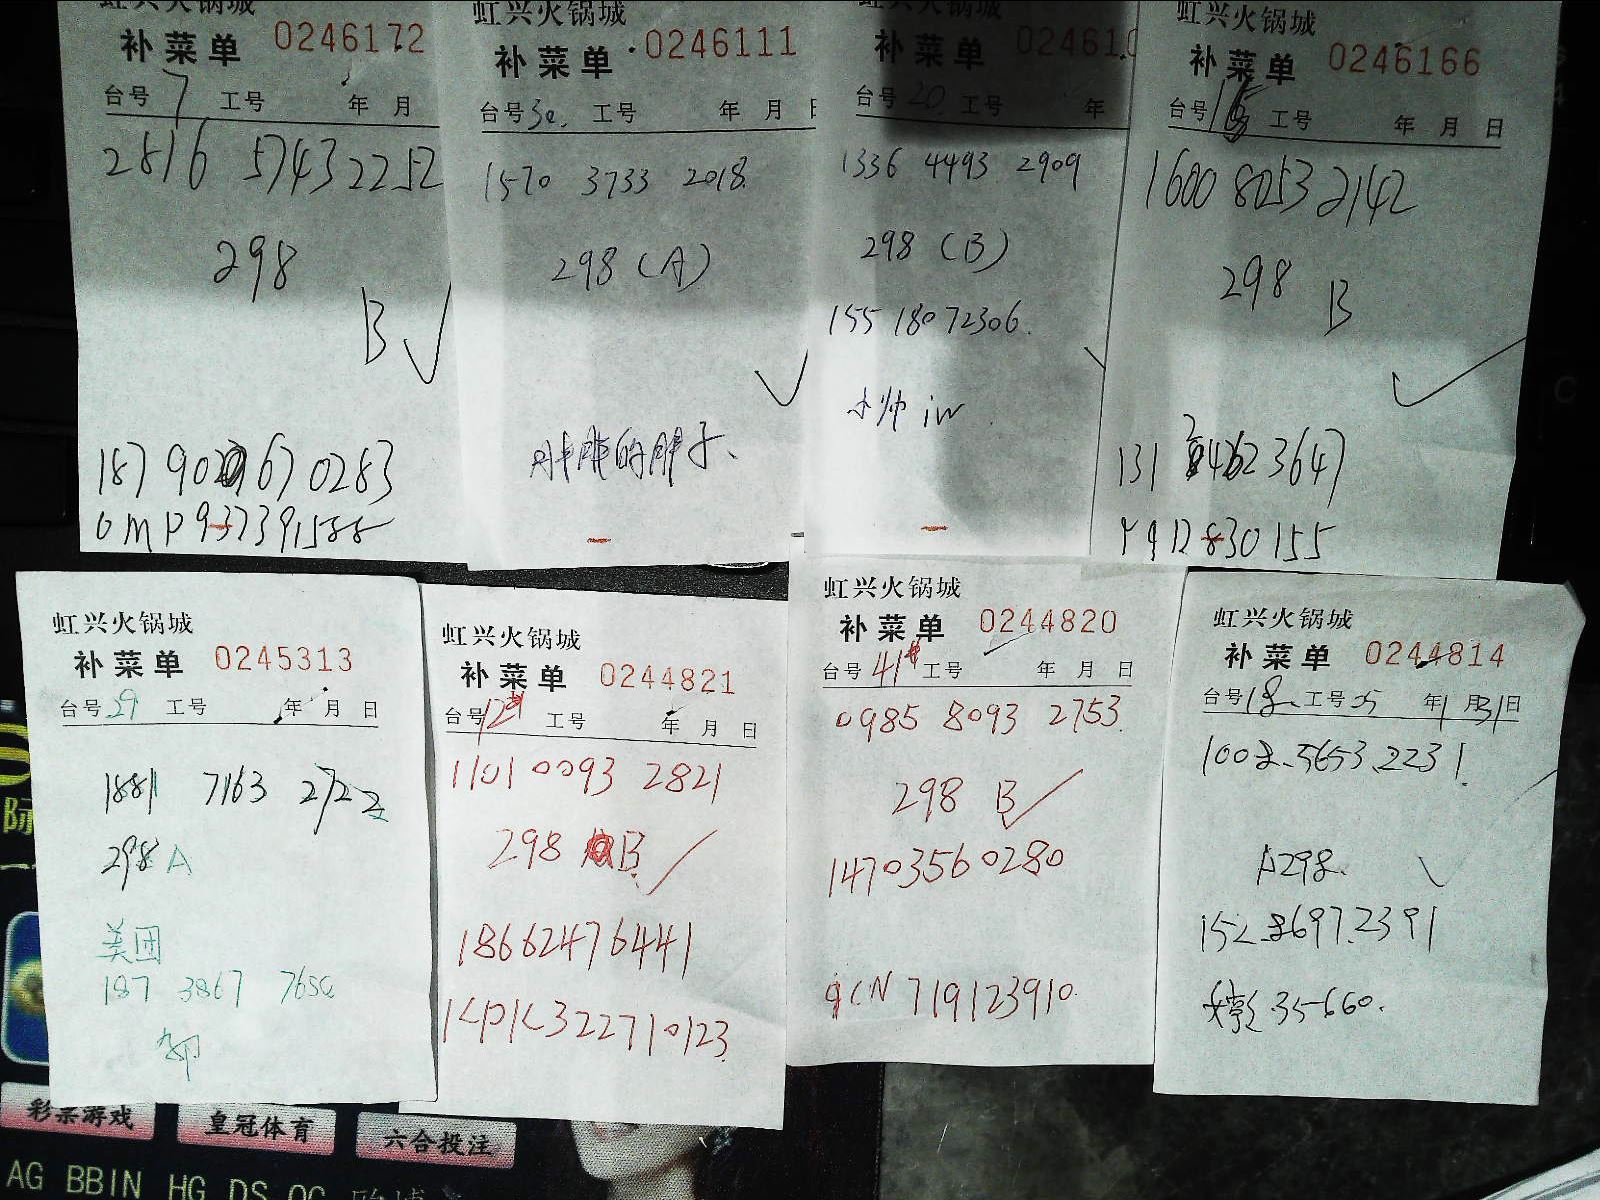 虹兴火锅城
补菜单 0246172
台号 7 工号 年 月
2816 5743 2252
298
B
187 902 670283
OMP937391588
虹兴火锅城
补菜单 0246111
台号 30. 工号 年 月 日
1570 3733 2018.
298 (A)
胖胖的胖子、
补菜单 024610
台号 20 工号 年
1336 4493 2909
298 (B)
155 1807 2306.
小帅 iw
虹兴火锅城
补菜单 0246166
台号 工号 年 月 日
1600 8053 2142
298 B
3647
830155
虹兴火锅城
补菜单 0245313
台号 29 工号 年 月 日
1881 7163 2722
298 A
美团
187 3867 7650
邹
虹兴火锅城
补菜单 0244821
台号 12# 工号 年 月 日
1101 0093 2821
298 B.
18662476441
KPK322710123
虹兴火锅城
补菜单 0244820
台号 41# 工号 年 月 日
0985 8093 2753
298 B
14703560280
9CN 719123910.
虹兴火锅城
补菜单 0244814
台号 18. 工号 05 年 1 月 31 日
1008.5653.2231.
A298.
152.8697.2391
35-660.
彩票游戏
皇冠体育
六合投注
AG BBIN HG DS OG